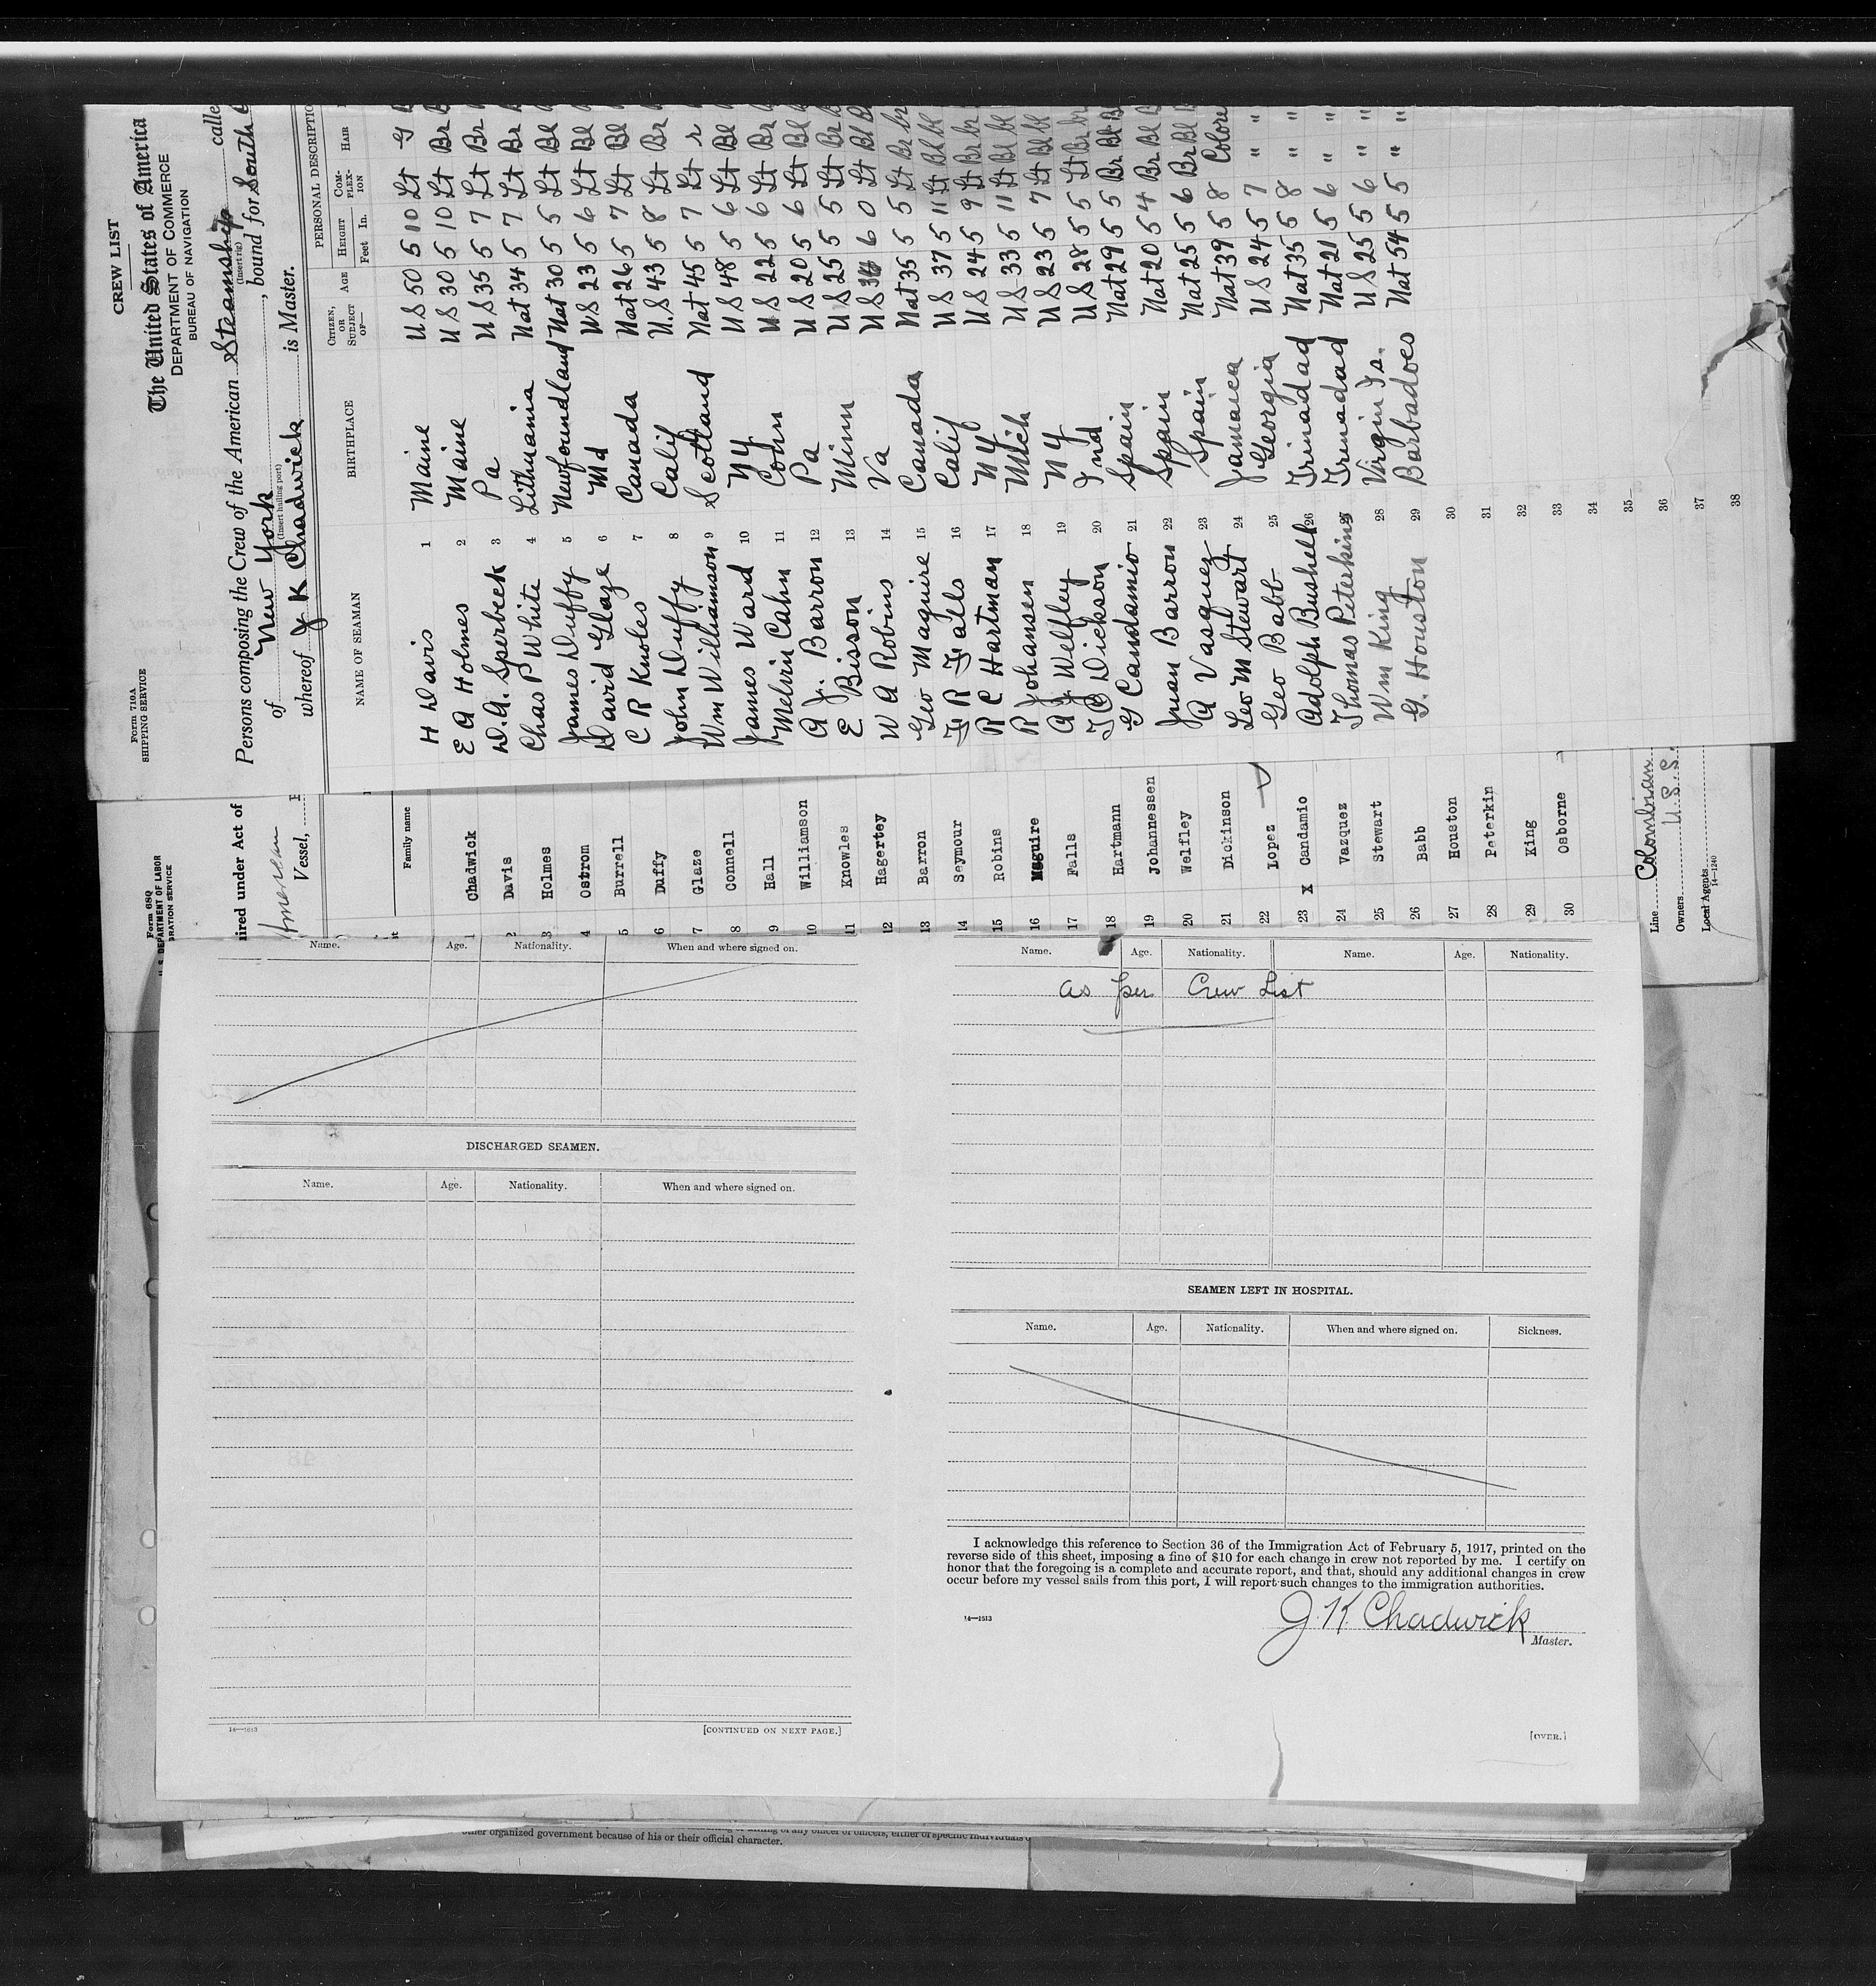 Form 710A
SHIPPING SERVICE
CREW LIST
The United States of America
DEPARTMENT OF COMMERCE
BUREAU OF NAVIGATION
Persons composing the Crew of the American Steamship calle
(Insert rig)
of New York, bound for South
(Insert hailing port)
whereof J K Chadwick is Master.
PERSONAL DESCRIPTIO
NAME OF SEAMAN BIRTHPLACE CITIZEN, OR SUBJECT OF— AGE HEIGHT COM-PLEX-ION HAIR
Feet In.
H Davis 1 Maine U S 50 5 10 Lt G
E A Holmes 2 Maine U S 30 5 10 Lt Br
D.A. Sperbeck 3 Pa U S 35 5 7 Lt Br
Chas P White 4 Lithuania Nat 34 5 7 Lt Br
James Duffy 5 Newfoundland Nat 30 5 5 Lt Bl
David Glaze 6 Md U S 23 5 6 Lt Bl
C R Knoles 7 Canada Nat 26 5 7 Lt Bl
John Duffy 8 Calif U.S 43 5 8 Lt Br
Wm Williamson 9 Scotland Nat 45 5 7 Lt r
James Ward 10 NY U S 48 5 6 Lt Bl
Melvin Cahn 11 Conn U S 22 5 6 Lt Br
A J. Barron 12 Pa U S 20 5 6 Lt Bl
E Bisson 13 Minn U S 25 5 5 Lt Br
W A Robins 14 Va U S 34 6 0 Lt Bl Bl
Geo Maguire 15 Canada Nat 35 5 5 Lt Br br
F R Falls 16 Calif U S 37 5 11 Lt Bl bl
R C Hartman 17 NY U S 24 5 9 Lt Br br
R Johansen 18 Mich U S 33 5 11 Lt Bl bl
A J. Welfley 19 NY U S 23 5 7 Lt Bl bl
Dickson 20 Ind U S 28 5 5 Lt Br br
G Candamio 21 Spain Nat 29 5 5 Br Bl
Juan Barron 22 Spain Nat 20 5 4 Br Bl
A Vasquez 23 Spain Nat 25 5 6 Br Bl
Leo M Stewart 24 Jamaica Nat 39 5 8 Colore
Geo Babb 25 Georgia U S 24 5 7 " "
Adolph Bushell 26 Trinadad Nat 35 5 8 " "
Thomas Peterkins 27 Trinadad Nat 21 5 6 " "
Wm King 28 Virgin Is. U S 25 5 6 " "
G. Houston 29 Barbadoes Nat 54 5 5 " "
30
31
32
33
34
35
36
37
38
Form 689
U. S. DEPARTMENT OF LABOR
GRATION SERVICE
ired under Act of
American
Vessel,
Family name
1 Chadwick
2 Davis
3 Holmes
4 Ostrom
5 Burrell
6 Duffy
7 Glaze
8 Connell
9 Hall
10 Williamson
11 Knowles
12 Hagertey
13 Barron
14 Seymour
15 Robins
16 Maguire
17 Falls
18 Hartmann
19 Johannessen
20 Welfley
21 Dickinson
22 Lopez
23 X Candamio
24 Vazquez
25 Stewart
26 Babb
27 Houston
28 Peterkin
29 King
30 Osborne
Line Colombian
Owners U. S. S.
Local Agents
14—1240
Name. Age. Nationality. When and where signed on.
DISCHARGED SEAMEN.
Name. Age. Nationality. When and where signed on.
14—1613
[CONTINUED ON NEXT PAGE.]
Name. Age. Nationality. Name. Age. Nationality.
as per Crew List
SEAMEN LEFT IN HOSPITAL.
Name. Age. Nationality. When and where signed on. Sickness.
I acknowledge this reference to Section 36 of the Immigration Act of February 5, 1917, printed on the
reverse side of this sheet, imposing a fine of $10 for each change in crew not reported by me. I certify on
honor that the foregoing is a complete and accurate report, and that, should any additional changes in crew
occur before my vessel sails from this port, I will report such changes to the immigration authorities.
J. K. Chadwick
Master.
14—1613
[OVER.]
other organized government because of his or their official character.